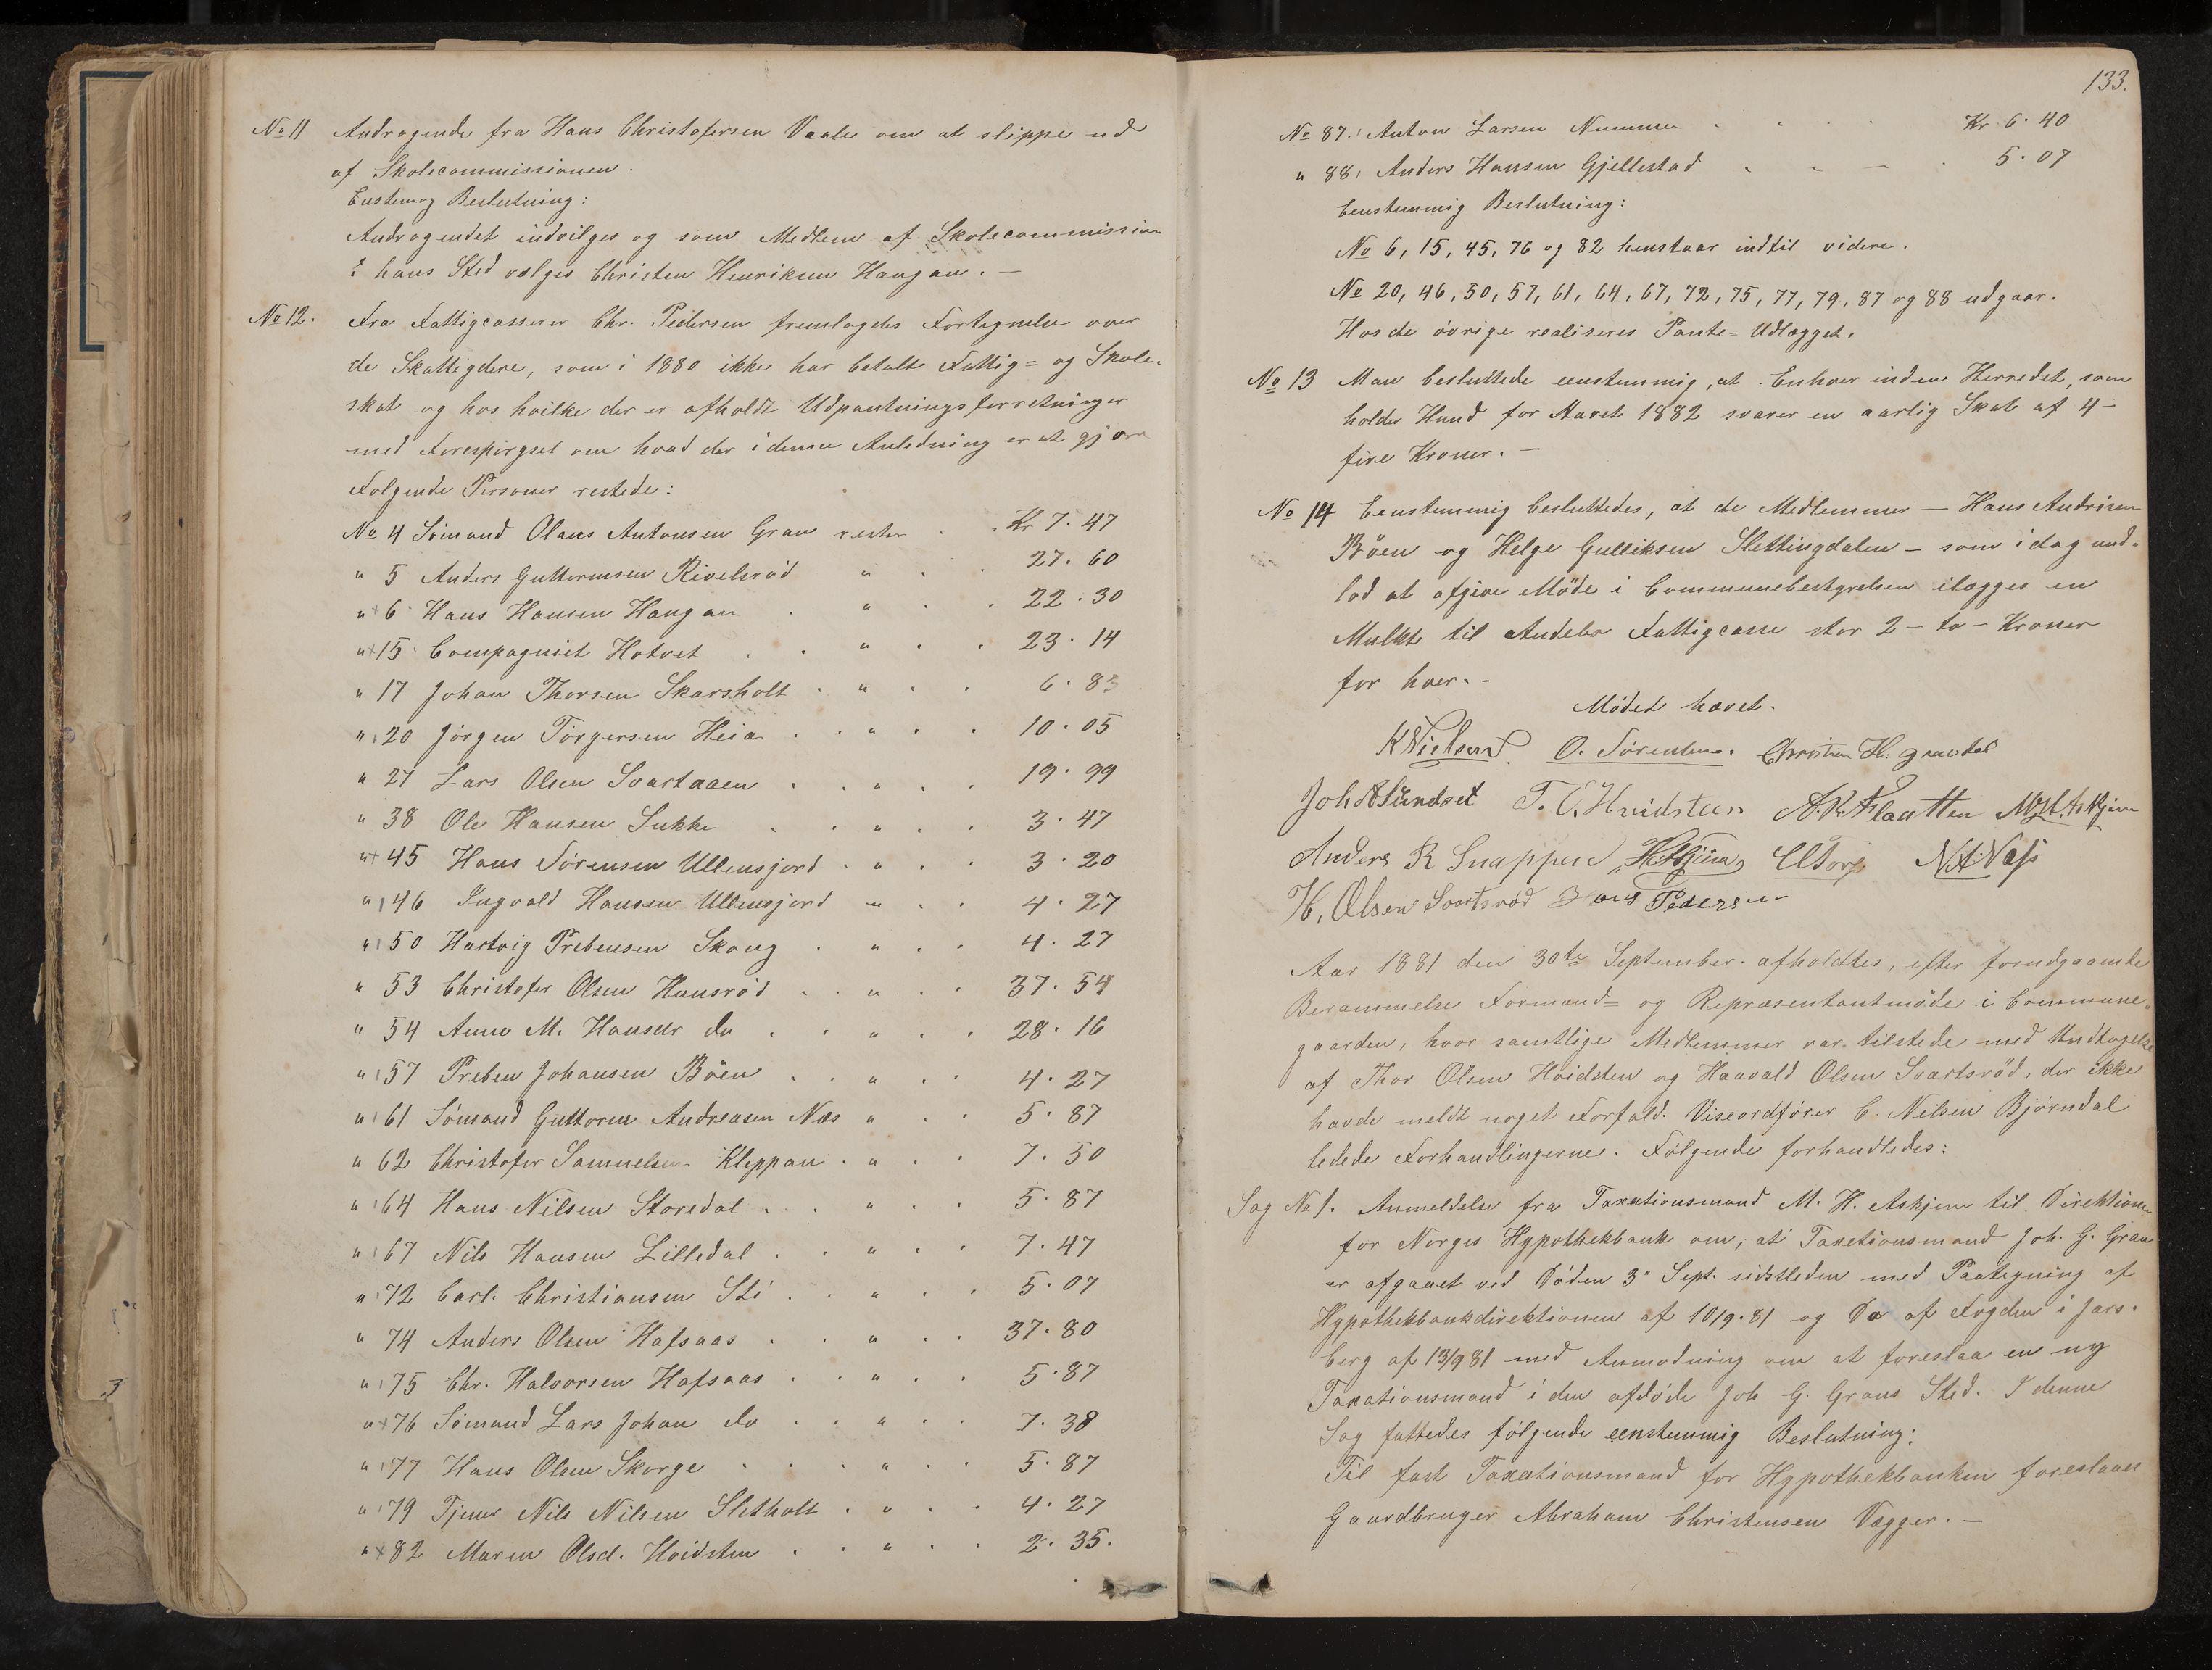 No 11 Andragende fra Hans Christofersen Vaale om at slippe ud
af Skolecommissionen.
Enstemog Beslutning:
Andragendet indvilges og som Medlem af Skolecommission
i hans Sted vælges Christen Henriksen Haugan. —
No 12. Fra Fattigcasserer Chr. Pedersen fremlagdes Fortegnelse over
de Skatteydere, som i 1880 ikke har betalt Fattig= og Skole-
skat og hos hvilke der er afholdt Udpantningsforretninger
med Forespörgsel om hvad der i denne Anledning er at gjøre
Følgende Personer restede:
No 4 Sömand Olaus Antonsen Gran rester . . Kr 7. 47
" 5 Anders Guttormsen Rivelsröd " . . 27. 60
" + 6 Hans Hansen Haugan . " . . 22. 30
" + 15 Compagniet Hotvet . . " . . 23. 14
" 17 Johan Thorsen Skarsholt . " . . 6. 83
" 20 Jörgen Törgersen Heia . . " . . 10. 05
" 27 Lars Olsen Svartaaen . . " . . 19. 99
" 38 Ole Hansen Sukke . . " . . 3. 47
" + 45 Hans Sörensen Ullensjord . " . 3. 20
" 46 Ingvald Hansen Ullensjord " . . 4. 27
" 50 Hartvig Prebensen Skoug . " . . 4. 27
" 53 Christofer Olsen Hunsröd . . " . . 37. 54
" 54 Anne M. Hansdr do . . " . . 28. 16
" 57 Preben Johansen Böen . . " . . 4. 27
" 61 Sömand Guttorm Andreasen Næs " . . 5. 87
" 62 Christofer Samuelsen Kleppan . " . . 7. 50
" 64 Hans Nilsen Storedal . . " . . 5. 87
" 67 Nils Hansen Lilledal . . " . . 7. 47
" 72 Carl Christiansen Sti . . " . . 5. 07
" 74 Anders Olsen Hafsaas . . " . . 37. 80
" 75 Chr. Halvorsen Hafsaas . . " . . 5. 87
" + 76 Sömand Lars Johan do . . " . . 7. 38
" 77 Hans Olsen Skorge . . " . . 5. 87
" 79 Tjener Nils Nilsen Sletholt . " . . 4. 27
" + 82 Maren Olsd. Hvidsten . . " . . 2. 35.
133.
No 87. Anton Larsen Nummer . . . . Kr 6. 40
" 88. Anders Hansen Gjellestad . . — . 5. 07
Eenstemmig Beslutning:
No 6, 15, 45, 76 og 82 henstaar indtil videre.
No 20, 46, 50, 57, 61, 64, 67, 72, 75, 77, 79, 87 og 88 udgaar.
Hos de övrige realiseres Pante= Udlægget.
No 13 Man besluttede eenstemmig, at Enhver inden Herredet, som
holder Hund for Aaret 1882 svarer en aarlig Skat af 4 —
fire Kroner. —
No 14 Eenstemmig besluttedes, at de Medlemmer — Hans Andrisen
Böen og Helge Gulliksen Slettingdalen — som idag und-
lod at afgive Möde i Communebestyrelsen ilægges en
Mulkt til Andebo Fattigcasse stor 2 — to — Kroner
for hver. -
Mödet hævet.
K Nielsen O. Sörensen. Christian H. Gravdal
Joh A Sundset T. O. Hvidsteen A. K. Flaatten M. H. Askjem
Anders R Snappen H. Askjem C. Torp N. A. Næss
H. Olsen Svartsröd Hans Pedersen
Aar 1881 den 30te September afholdtes, efter forudgaaende
Berammelse Formand= og Repræsentantmöde i Commune-
gaarden, hvor samtlige Medlemmer var tilstede med Undtagelse
af Thor Olsen Hvidsten og Haavald Olsen Svartsröd, der ikke
havde meldt noget Forfald. Viseordförer C. Nilsen Björndal
ledede Forhandlingerne. Fölgende forhandledes:
Sag No 1. Anmeldelse fra Taxationsmand M. H. Askjem til Direktionen
for Norges Hypothekbank om, at Taxationsmand Joh. G. Gran
er afgaaet ved Döden 3" Sept. sidstleden med Paategning af
Hypothekbankdirektionen af 10/9. 81 og Do af Fogden i Jars-
berg af 13/9 81 med Anmodning om at foreslaa en ny
Taxationsmand i den afdöde Joh G. Grans Sted. I denne
Sag fattedes fölgende eenstemmig Beslutning:
Til fast Taxationsmand for Hypothekbanken foreslaaes
Gaardbruger Abraham Christensen Vægger. —